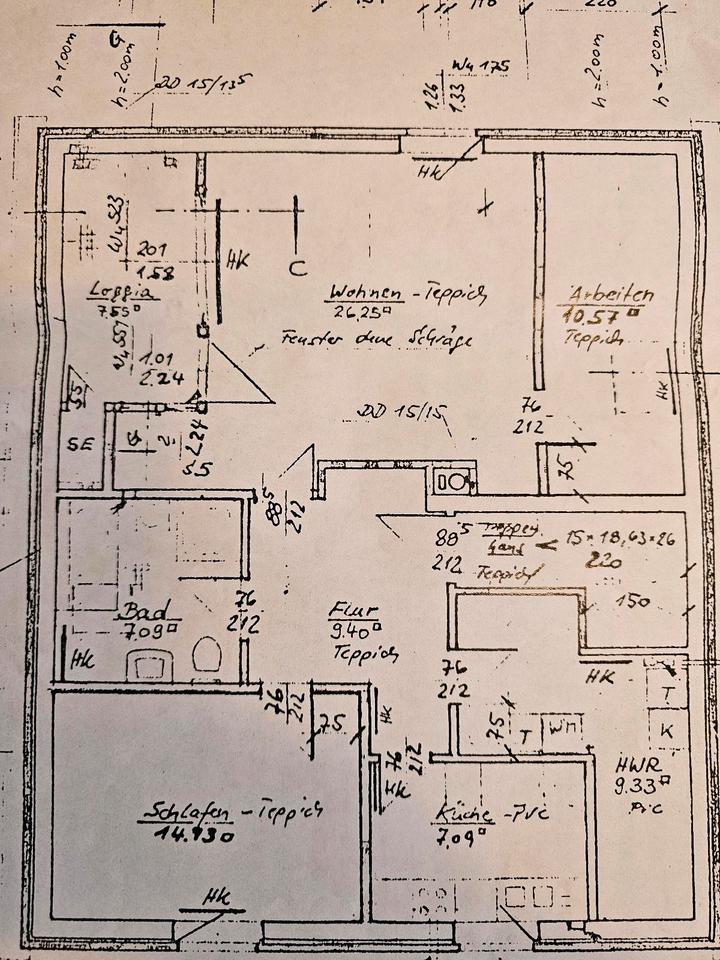 220
h=1.00m
h=2.00m
DD 15/13⁵
W4 175
1.26
1.33
h=2.00m
h=1.00m
HK
W4 523
201
1.58
HK
C
Loggia
7.55
Wohnen - Teppich
26.25
Fenster ohne Schräge
Arbeiten
10.57
Teppich
W4 557
1.01
2.24
HK
S5
DD 15/15
76
212
SE
2.24
S5
75
88⁵
212
88⁵
212
Treppen
Teppich
15 × 18,63 × 26
220
150
Bad
7.09
76
212
Flur
9.40
Teppich
HK
76
212
HK
76
212
75
HK
75
T
WM
T
K
76
212
HK
HWR
9.33
Schlafen - Teppich
14.93
Küche - PVC
7.09
HK